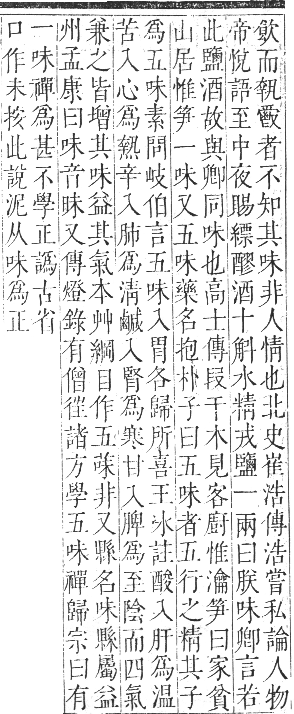 飲而執觴者不知其味非人情也北史崔浩傳浩嘗私論人物
帝悅語至中夜賜縹醪酒十斛水精戎鹽一兩曰朕味卿言若
此鹽酒故與卿同味也高士傳段干木見客廚惟瀹笋曰家貧
山居惟笋一味又五味藥名抱朴子曰五味者五行之精其子
爲五味素問岐伯言五味入胃各歸所喜王冰註酸入肝爲温
苦入心爲熱辛入肺爲清鹹入腎爲寒甘入脾爲至陰而四氣
兼之皆增其味益其氣本艸綱目作五䓊非又縣名味縣屬益
州孟康曰味音昧又傳燈錄有僧徃諸方學五味禪歸宗曰有
一味禪爲甚不學正譌古省
口作未按此說泥从味爲正